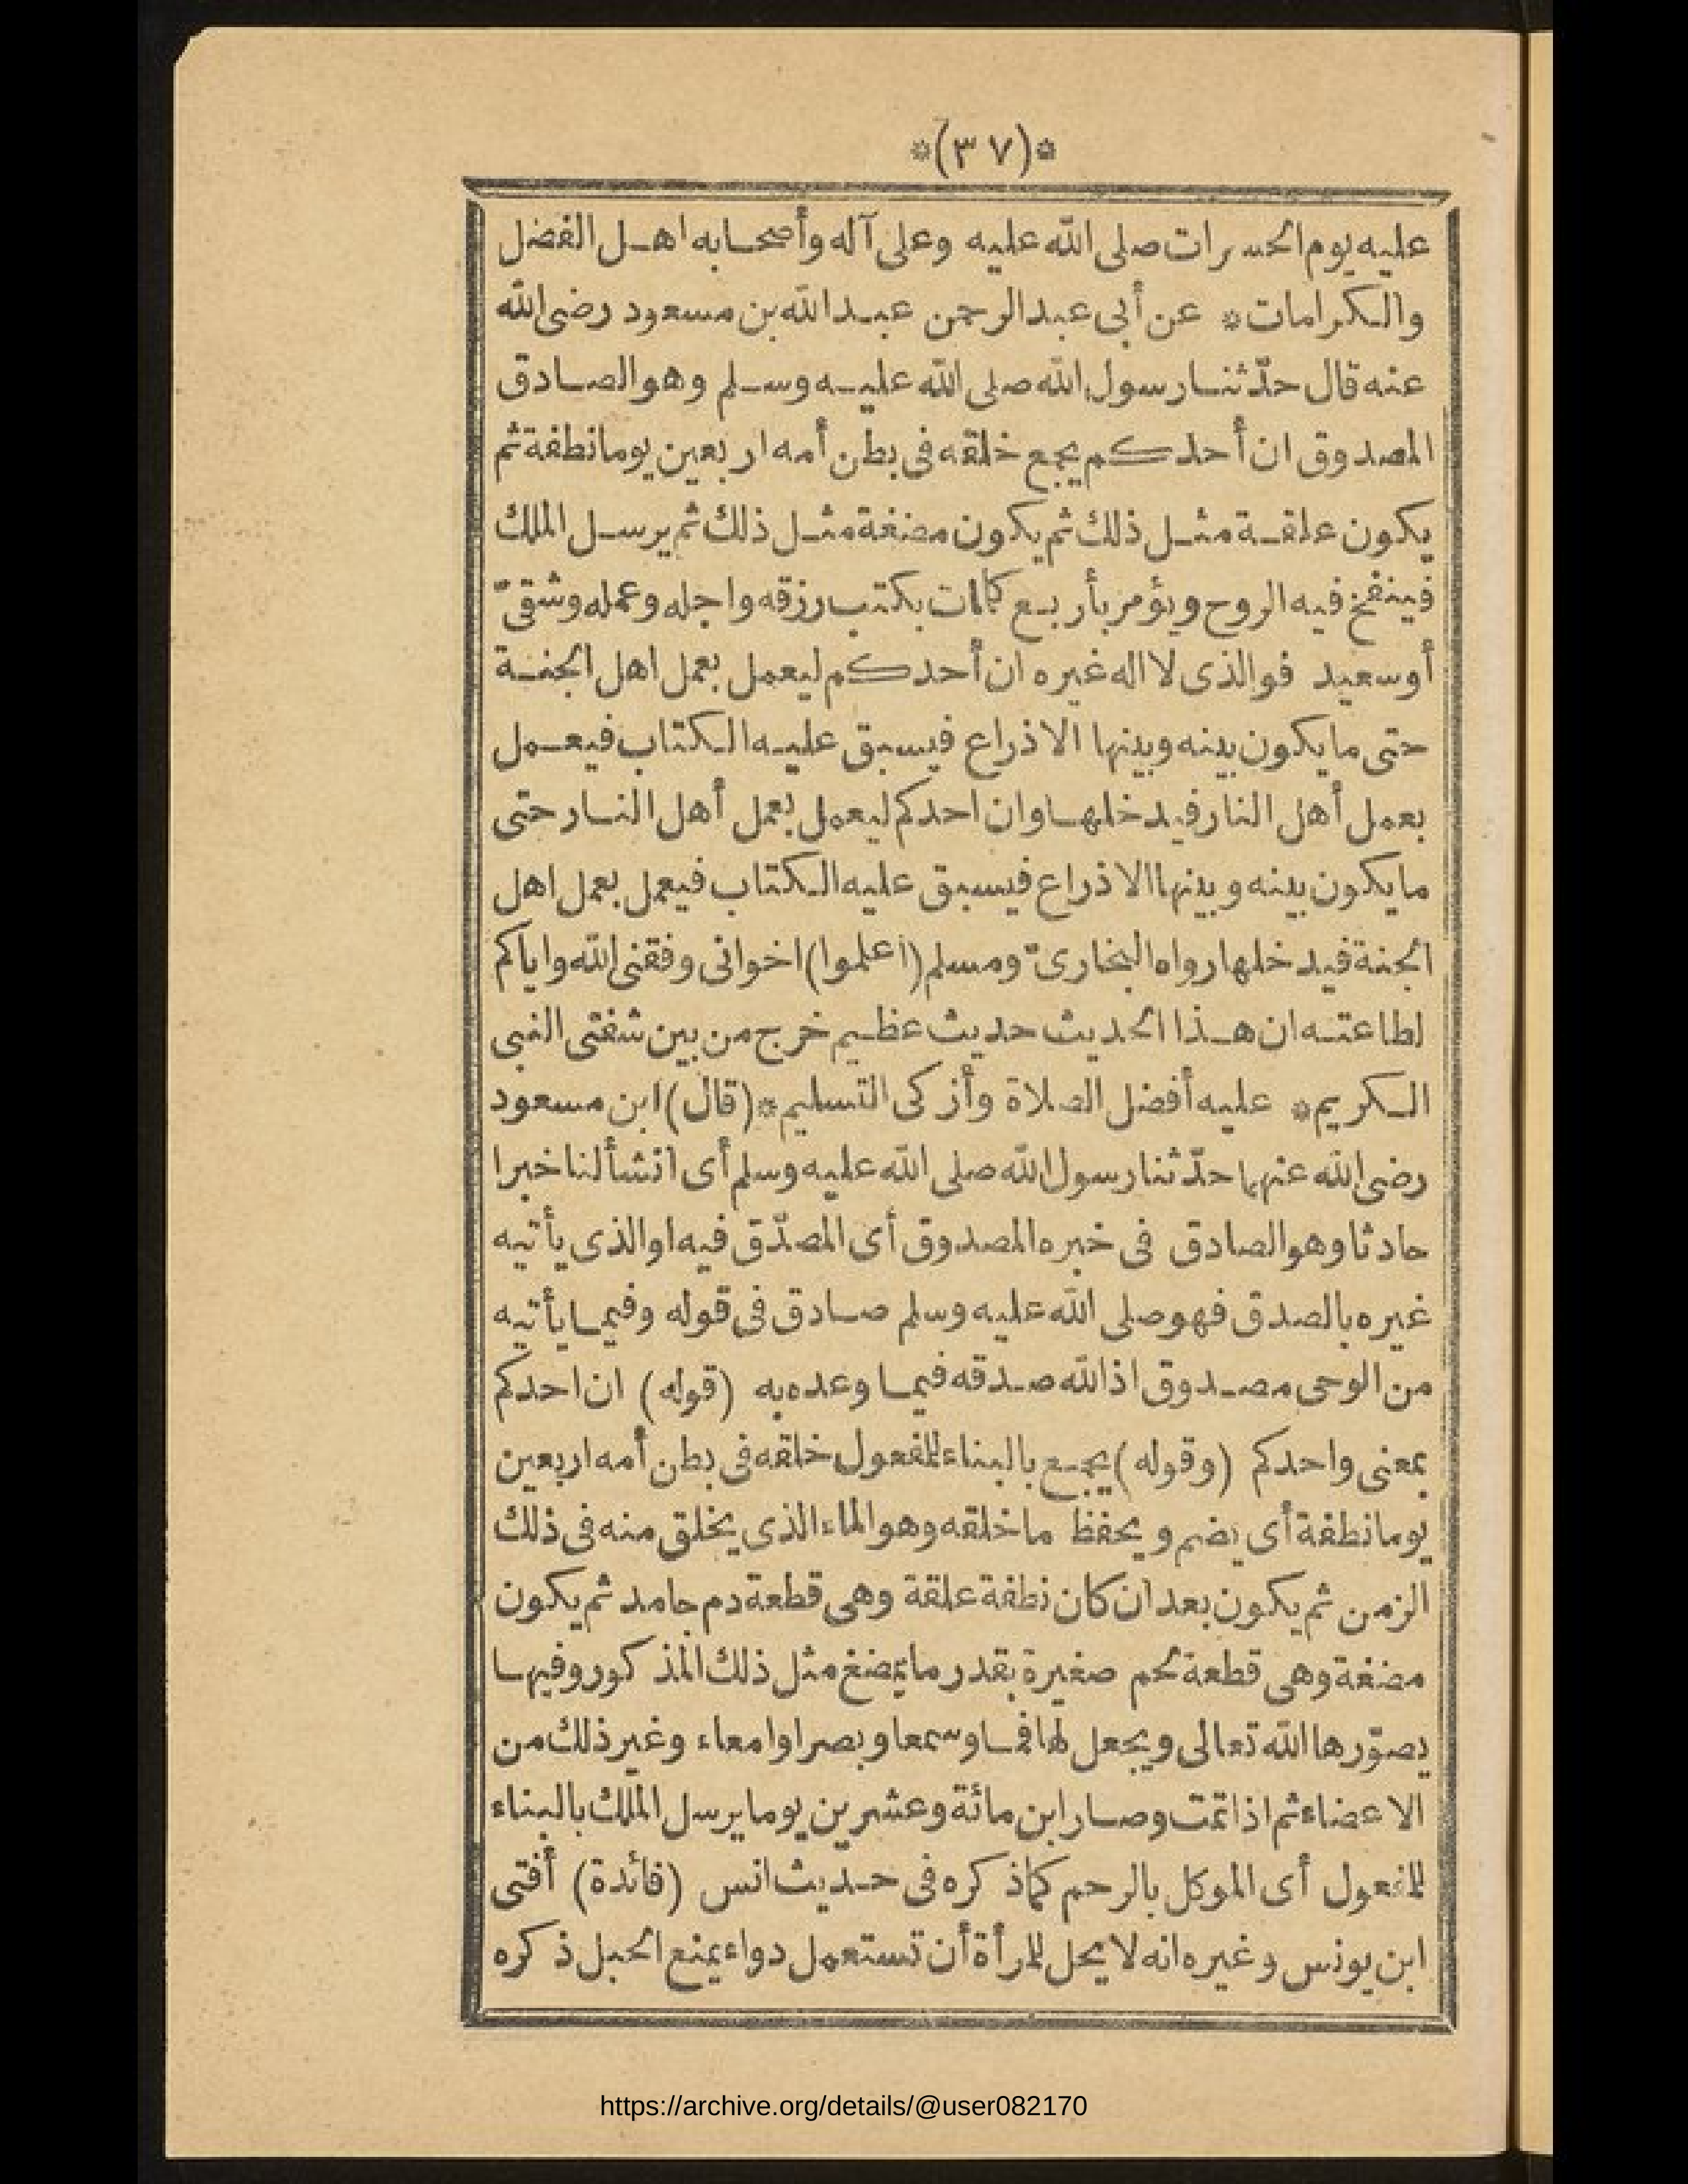 *(٣٧)*
عليه يوم الحسرات صلى الله عليه وعلى آله وأصحابه اهل الفضل
والكرامات* عن أبى عبد الرحمن عبد الله بن مسعود رضى الله
عنه قال حدّثنا رسول الله صلى الله عليه وسلم وهو الصادق
المصدوق ان أحدكم يجمع خلقه فى بطن أمه اربعين يوما نطفة ثم
يكون علقة مثل ذلك ثم يكون مضغة مثل ذلك ثم يرسل الملك
فينفخ فيه الروح ويؤمر بأربع كلمات بكتب رزقه واجله وعمله وشقىّ
أو سعيد فوالذى لا اله غيره ان أحدكم ليعمل بعمل اهل الجنة
حتى ما يكون بينه وبينها الا ذراع فيسبق عليه الكتاب فيعمل
بعمل أهل النار فيدخلها وان احدكم ليعمل بعمل أهل النار حتى
ما يكون بينه وبينها الا ذراع فيسبق عليه الكتاب فيعمل بعمل اهل
الجنة فيدخلها رواه البخارىّ ومسلم (اعلموا) اخوانى وفقنى الله واياكم
لطاعته ان هذا الحديث حديث عظيم خرج من بين شفتى النبى
الكريم* عليه أفضل الصلاة وأزكى التسليم*(قال) ابن مسعود
رضى الله عنهما حدّثنا رسول الله صلى الله عليه وسلم أى انشألنا خبرا
حادثا وهو الصادق فى خبره المصدوق أى المصدّق فيه او الذى يأتيه
غيره بالصدق فهو صلى الله عليه وسلم صادق فى قوله وفيما يأتيه
من الوحى مصدوق اذ الله صدقه فيما وعده به (قوله) ان احدكم
بمعنى واحدكم (وقوله) يجمع بالبناء للمفعول خلقه فى بطن أمه اربعين
يوما نطفة أى يضم ويحفظ ما خلقه وهو الماء الذى يخلق منه فى ذلك
الزمن ثم يكون بعد ان كان نطفة علقة وهى قطعة دم جامد ثم يكون
مضغة وهى قطعة لحم صغيرة بقدر ما يمضغ مثل ذلك المذكور وفيها
يصوّرها الله تعالى ويجعل لها فما وسمعا وبصرا وامعاء وغير ذلك من
الاعضاء ثم اذا تمت وصار ابن مائة وعشرين يوما يرسل الملك بالبناء
للمفعول أى الموكل بالرحم كما ذكره فى حديث انس (فائدة) أفتى
ابن يونس وغيره انه لا يحل للمرأة أن تستعمل دواء يمنع الحبل ذكره
https://archive.org/details/@user082170